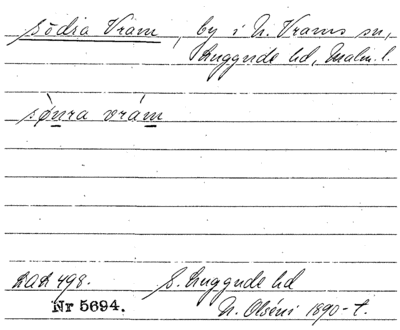 Södra Vram, by i N. Vrams sn,
Luggude hd, Malm. l.
sø̀nra vrám
RAÄ 498. S. Luggude hd
Nr 5694. N. Olséni 1890-t.